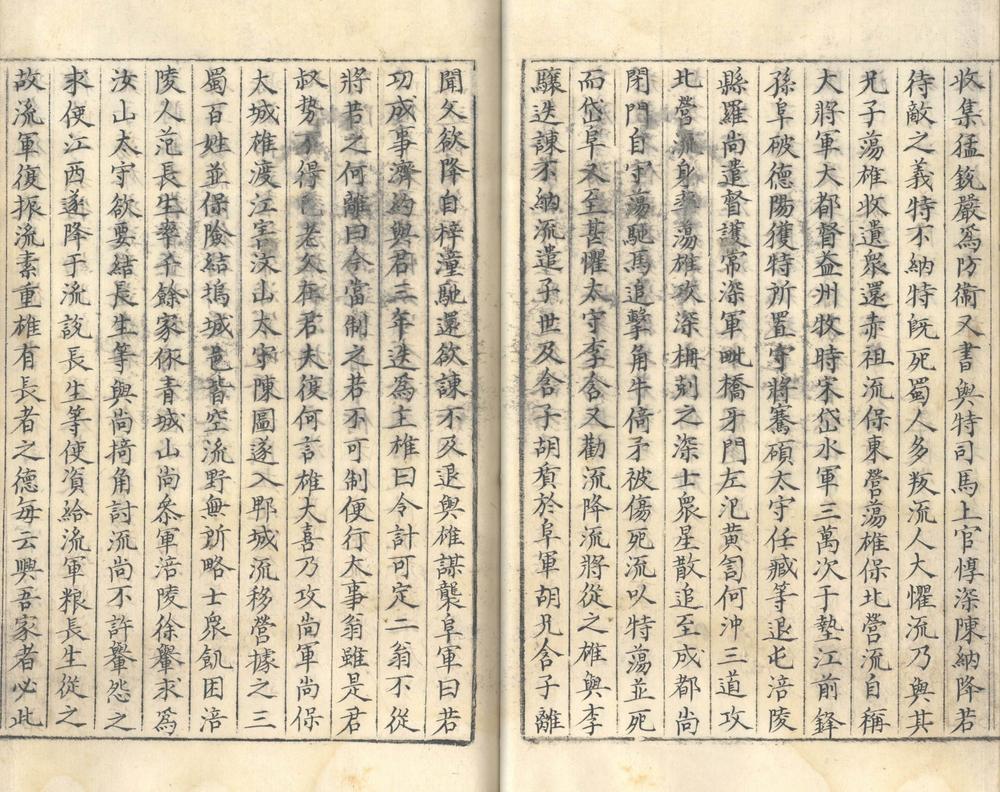 收集猛銳嚴爲防衞又書與特司馬上官惇深陳納降若
待敵之義特不納特旣死蜀人多叛流人大懼流乃與其
兄子蕩雄收遺衆還赤祖流保東營蕩雄保北營流自稱
大將軍大都督益州牧時宋岱水軍三萬次于墊江前鋒
孫阜破德陽獲特所置守將騫碩太守任臧等退屯涪陵
縣羅尚遣督護常深軍毗橋牙門左氾黃訇何沖三道攻
北營流身率蕩雄攻深柵剋之深士衆星散追至成都尚
閉門自守蕩馳馬追擊角牛倚矛被傷死流以特蕩並死
而岱阜又至甚懼太守李含又勸流降流將從之雄與李
驤迭諫不納流遣子世及含子胡質於阜軍胡兄含子離
聞父欲降自梓潼馳還欲諫不及退與雄謀襲阜軍曰若
功成事濟約與君三年迭爲主雄曰今計可定二翁不從
將若之何離曰今當制之若不可制便行大事翁雖是君
叔势不得已老父在君夫復何言雄大喜乃攻尚軍尚保
大城雄渡江害汶山太守陳圖遂入郫城流移營據之三
蜀百姓並保險結塢城邑皆空流野無所略士衆飢困涪
陵人范長生率千餘家依青城山尚叅軍涪陵徐轝求爲
汶山太守欲要結長生等與尚掎角討流尚不許轝怨之
求使江西遂降于流說長生等使資給流軍粮長生從之
故流軍復振流素重雄有長者之德每云興吾家者必此